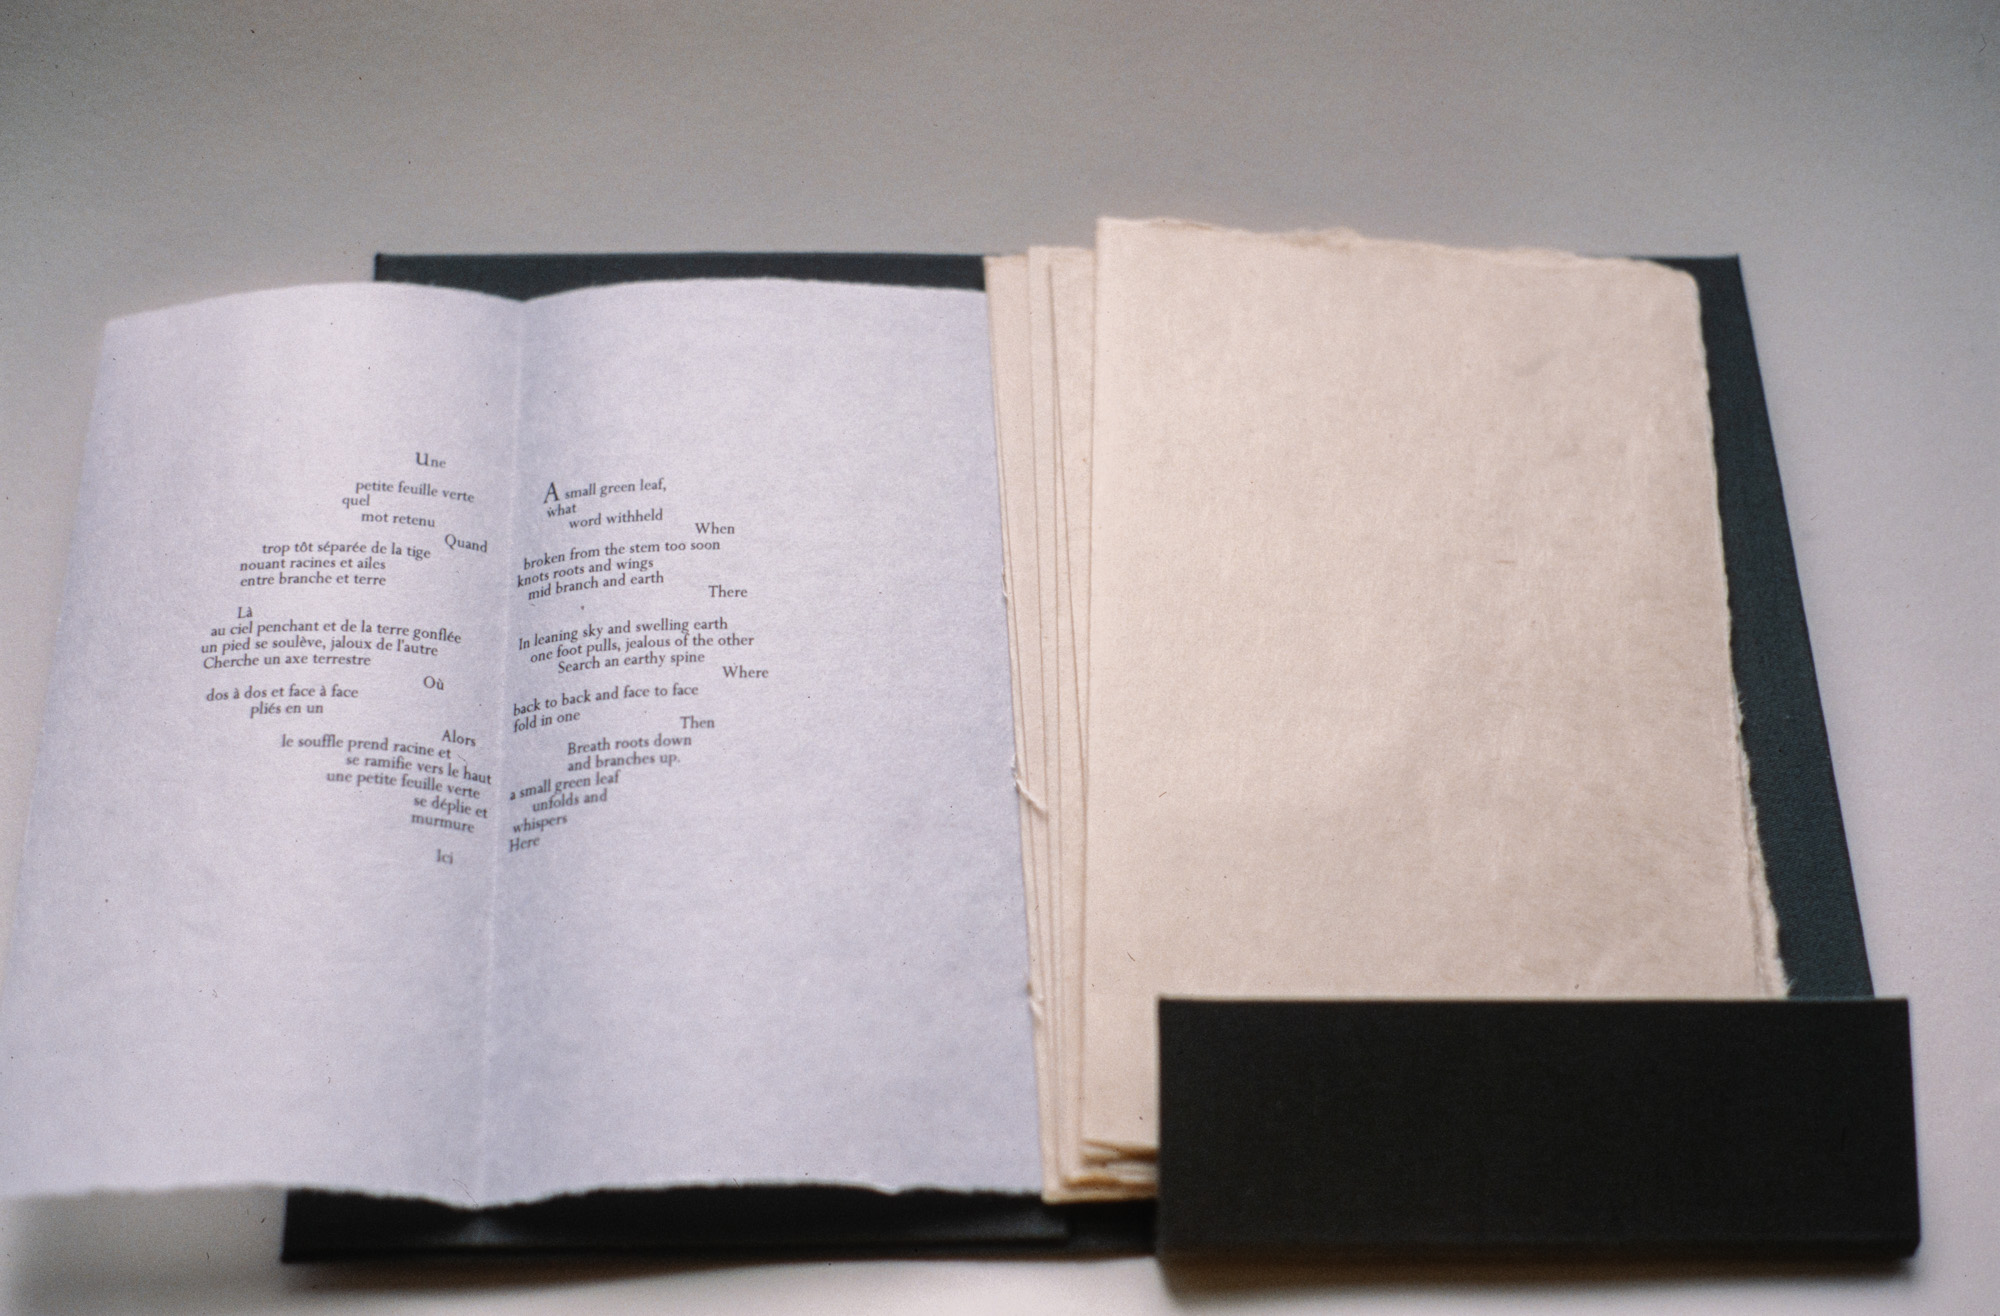 Une
petite feuille verte
quel
mot retenu
Quand
trop tôt séparée de la tige
nouant racines et ailes
entre branche et terre
Là
au ciel penchant et de la terre gonflée
un pied se soulève, jaloux de l'autre
Cherche un axe terrestre
Où
dos à dos et face à face
pliés en un
Alors
le souffle prend racine et
se ramifie vers le haut
une petite feuille verte
se déplie et
murmure
Ici
A small green leaf,
what
word withheld
When
broken from the stem too soon
knots roots and wings
mid branch and earth
There
In leaning sky and swelling earth
one foot pulls, jealous of the other
Search an earthy spine
Where
back to back and face to face
fold in one
Then
Breath roots down
and branches up.
a small green leaf
unfolds and
whispers
Here